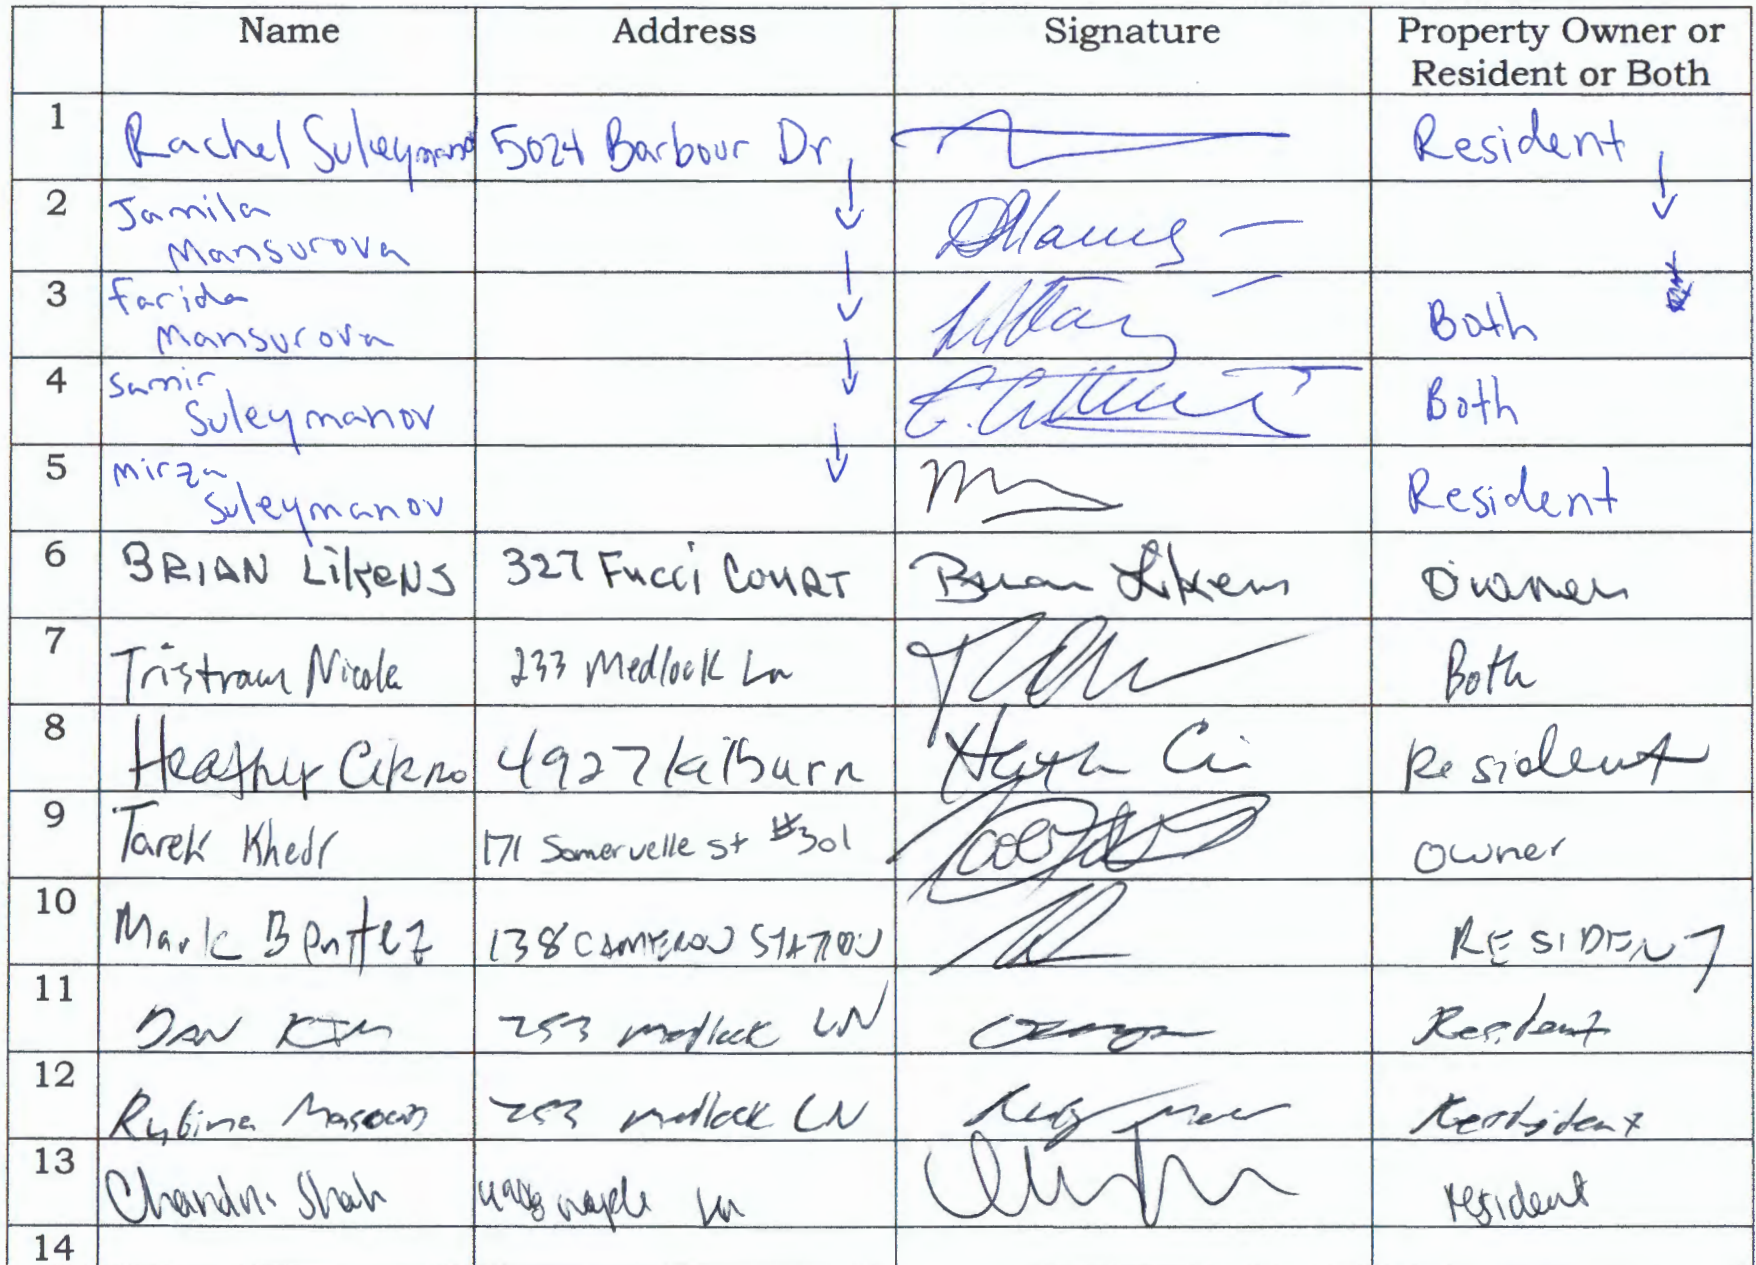 Name Address Signature Property Owner or
Resident or Both
1 Rachel Suleymanov 5024 Barbour Dr Resident
2 Jamila
Mansurova
3 Farida
Mansurova Both
4 Samir
Suleymanov Both
5 Mirza
Suleymanov Resident
6 BRIAN LiKeNS 327 Fucci COURT Brian Likens Owner
7 Tristram Nicole 233 Medlock Ln Both
8 Heather 4927 Kilburn Resident
9 Tarek Khedr 171 Somervelle st #301 Owner
10 Mark Benitez 138 CAMERON STATION RESIDENT
11 DAN KIM 253 medlock LN Resident
12 Rubina 253 medlock LN Resident
13 Chandni Shah Ln resident
14